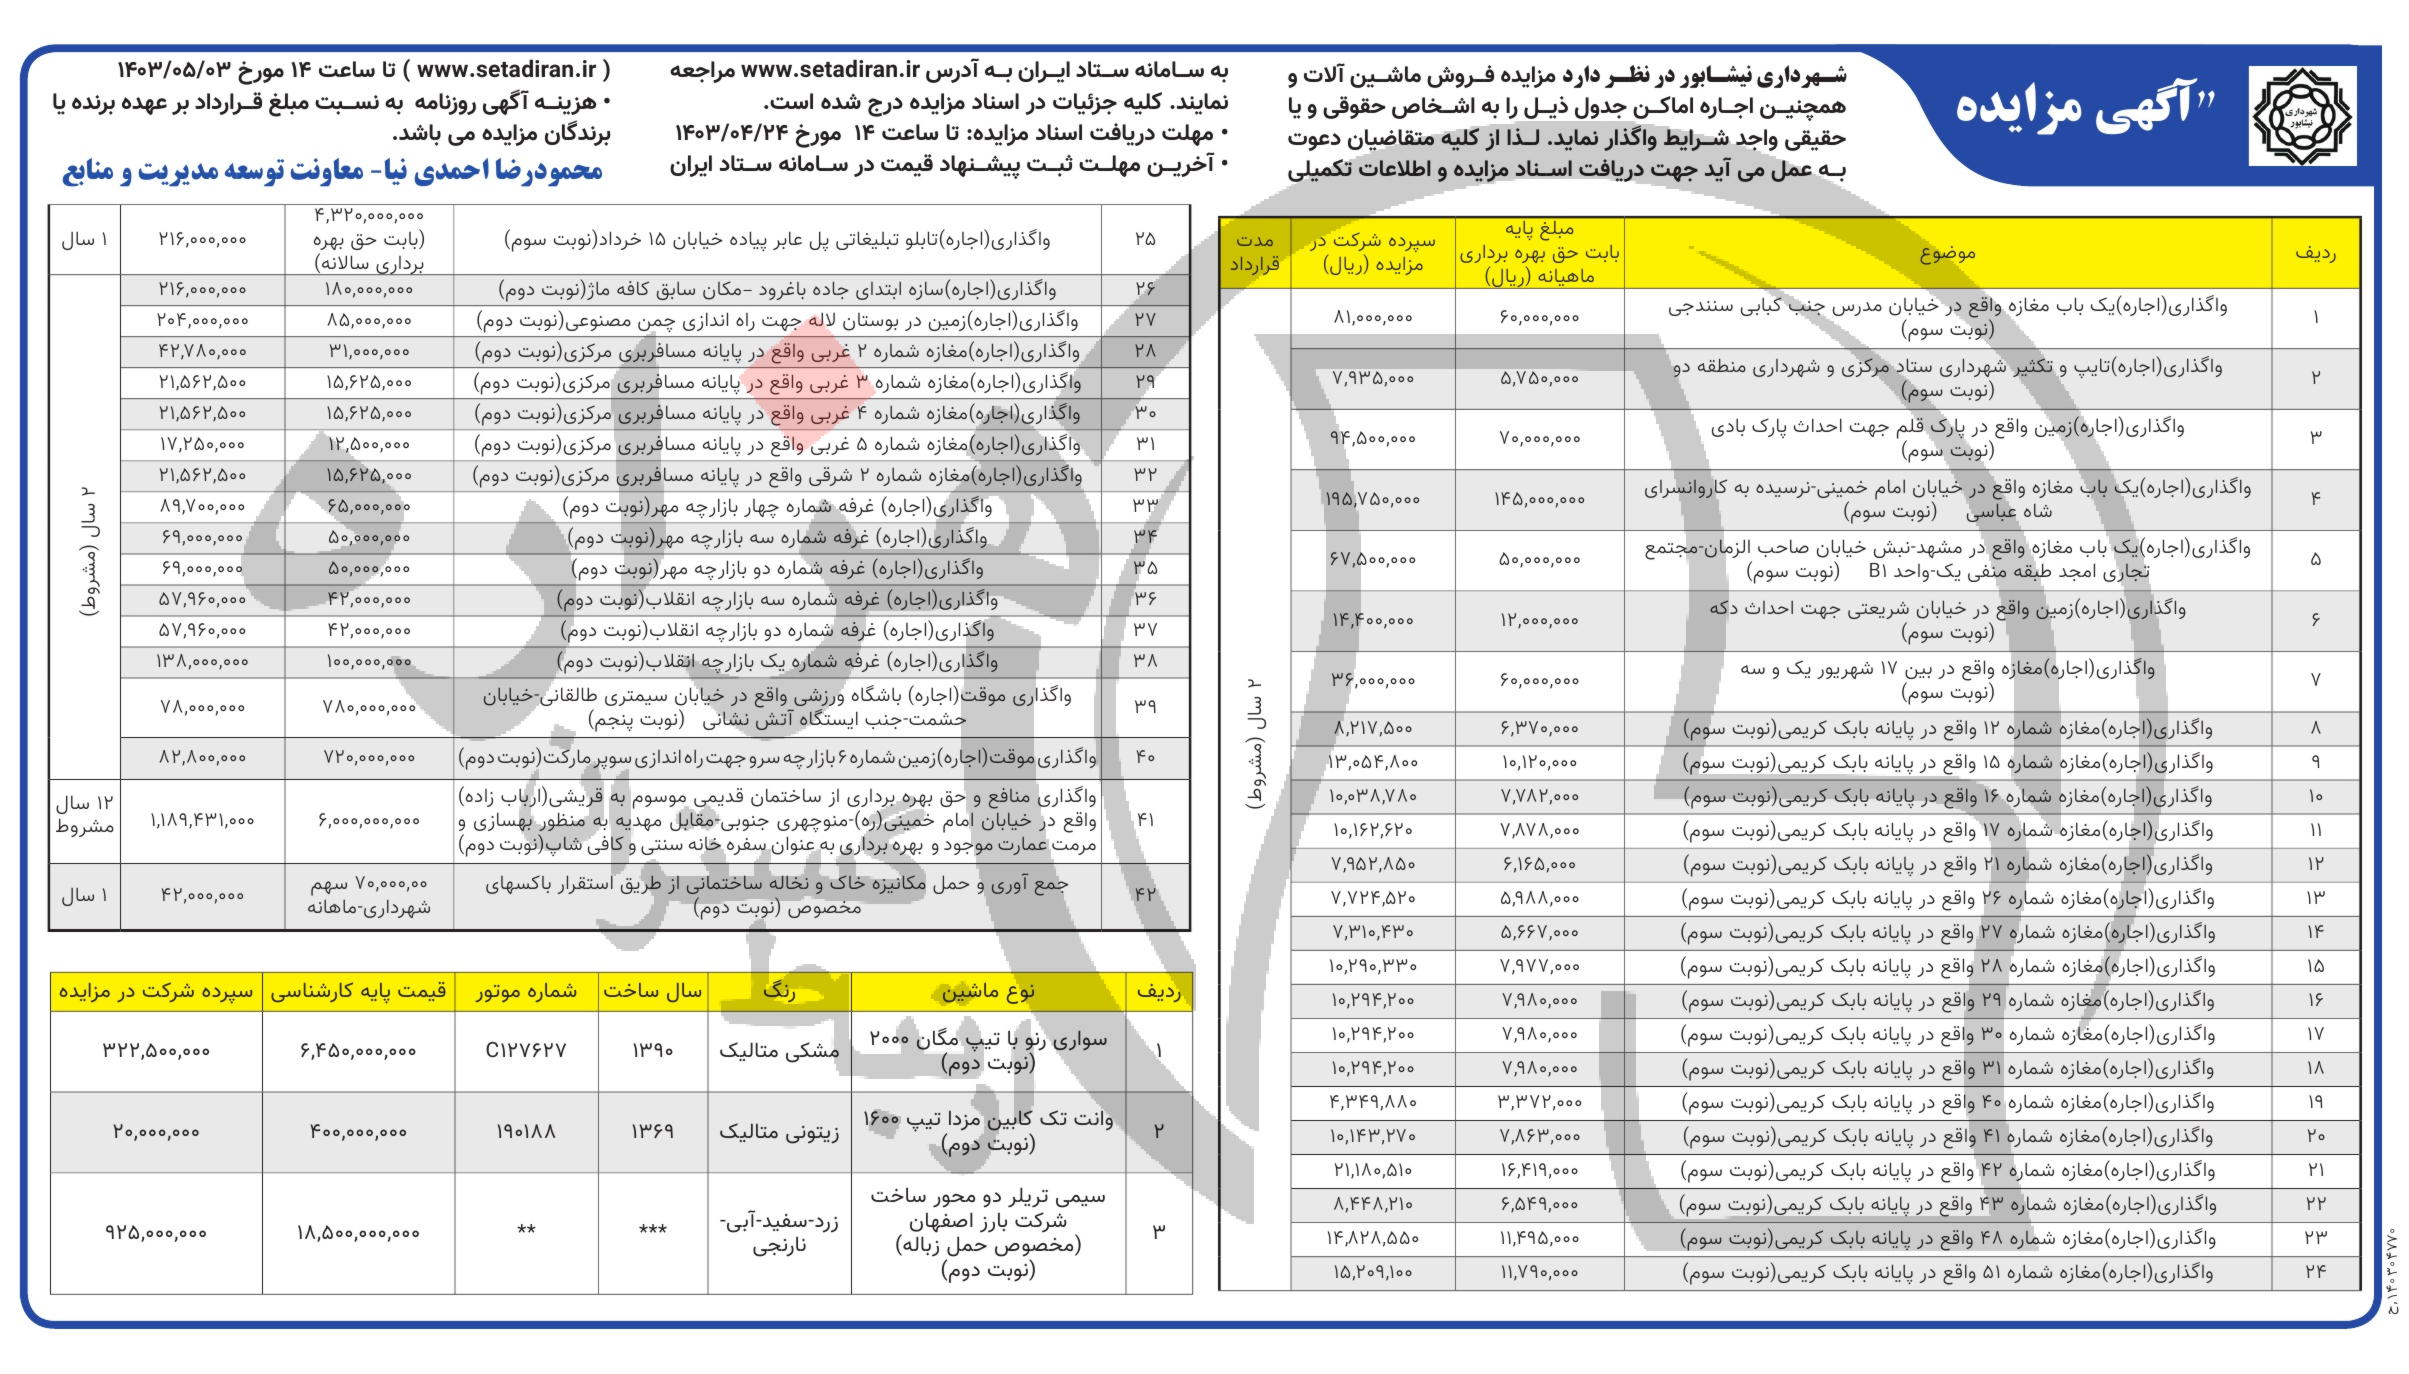 شهرداری نیشابور
"آگهی مزایده
شـهرداری نیشـابور در نظـر دارد مزایده فـروش ماشـین آلات و
همچنیـن اجـاره اماکـن جدول ذیـل را به اشـخاص حقوقی و یا
حقیقی واجد شـرایط واگذار نماید. لـذا از کلیه متقاضیان دعوت
بـه عمل می آید جهت دریافت اسـناد مزایده و اطلاعات تکمیلی
به سـامانه سـتاد ایـران بـه آدرس www.setadiran.ir مراجعه
نمایند. کلیه جزئیات در اسناد مزایده درج شده است.
• مهلت دریافت اسناد مزایده: تا ساعت ۱۴ مورخ ۱۴۰۳/۰۴/۲۴
• آخریـن مهلـت ثبـت پیشـنهاد قیمت در سـامانه سـتاد ایران
( www.setadiran.ir ) تا ساعت ۱۴ مورخ ۱۴۰۳/۰۵/۰۳
• هزینـه آگهی روزنامه به نسـبت مبلغ قـرارداد بر عهده برنده یا
برندگان مزایده می باشد.
محمودرضا احمدی نیا- معاونت توسعه مدیریت و منابع
ردیف موضوع مبلغ پایه بابت حق بهره برداری ماهیانه (ریال) سپرده شرکت در مزایده (ریال) مدت قرارداد
۱ واگذاری(اجاره)یک باب مغازه واقع در خیابان مدرس جنب کبابی سنندجی
(نوبت سوم) ۶۰,۰۰۰,۰۰۰ ۸۱,۰۰۰,۰۰۰
۲ واگذاری(اجاره)تایپ و تکثیر شهرداری ستاد مرکزی و شهرداری منطقه دو
(نوبت سوم) ۵,۷۵۰,۰۰۰ ۷,۹۳۵,۰۰۰
۳ واگذاری(اجاره)زمین واقع در پارک قلم جهت احداث پارک بادی
(نوبت سوم) ۷۰,۰۰۰,۰۰۰ ۹۴,۵۰۰,۰۰۰
۴ واگذاری(اجاره)یک باب مغازه واقع در خیابان امام خمینی-نرسیده به کاروانسرای
شاه عباسی (نوبت سوم) ۱۴۵,۰۰۰,۰۰۰ ۱۹۵,۷۵۰,۰۰۰
۵ واگذاری(اجاره)یک باب مغازه واقع در مشهد-نبش خیابان صاحب الزمان-مجتمع
تجاری امجد طبقه منفی یک-واحد B۱ (نوبت سوم) ۵۰,۰۰۰,۰۰۰ ۶۷,۵۰۰,۰۰۰
۶ واگذاری(اجاره)زمین واقع در خیابان شریعتی جهت احداث دکه
(نوبت سوم) ۱۲,۰۰۰,۰۰۰ ۱۴,۴۰۰,۰۰۰
۷ واگذاری(اجاره)مغازه واقع در بین ۱۷ شهریور یک و سه
(نوبت سوم) ۶۰,۰۰۰,۰۰۰ ۳۶,۰۰۰,۰۰۰
۸ واگذاری(اجاره)مغازه شماره ۱۲ واقع در پایانه بابک کریمی(نوبت سوم) ۶,۳۷۰,۰۰۰ ۸,۲۱۷,۵۰۰
۹ واگذاری(اجاره)مغازه شماره ۱۵ واقع در پایانه بابک کریمی(نوبت سوم) ۱۰,۱۲۰,۰۰۰ ۱۳,۰۵۴,۸۰۰
۱۰ واگذاری(اجاره)مغازه شماره ۱۶ واقع در پایانه بابک کریمی(نوبت سوم) ۷,۷۸۲,۰۰۰ ۱۰,۰۳۸,۷۸۰
۱۱ واگذاری(اجاره)مغازه شماره ۱۷ واقع در پایانه بابک کریمی(نوبت سوم) ۷,۸۷۸,۰۰۰ ۱۰,۱۶۲,۶۲۰
۱۲ واگذاری(اجاره)مغازه شماره ۲۱ واقع در پایانه بابک کریمی(نوبت سوم) ۶,۱۶۵,۰۰۰ ۷,۹۵۲,۸۵۰
۱۳ واگذاری(اجاره)مغازه شماره ۲۶ واقع در پایانه بابک کریمی(نوبت سوم) ۵,۹۸۸,۰۰۰ ۷,۷۲۴,۵۲۰
۱۴ واگذاری(اجاره)مغازه شماره ۲۷ واقع در پایانه بابک کریمی(نوبت سوم) ۵,۶۶۷,۰۰۰ ۷,۳۱۰,۴۳۰
۱۵ واگذاری(اجاره)مغازه شماره ۲۸ واقع در پایانه بابک کریمی(نوبت سوم) ۷,۹۷۷,۰۰۰ ۱۰,۲۹۰,۳۳۰
۱۶ واگذاری(اجاره)مغازه شماره ۲۹ واقع در پایانه بابک کریمی(نوبت سوم) ۷,۹۸۰,۰۰۰ ۱۰,۲۹۴,۲۰۰
۱۷ واگذاری(اجاره)مغازه شماره ۳۰ واقع در پایانه بابک کریمی(نوبت سوم) ۷,۹۸۰,۰۰۰ ۱۰,۲۹۴,۲۰۰
۱۸ واگذاری(اجاره)مغازه شماره ۳۱ واقع در پایانه بابک کریمی(نوبت سوم) ۷,۹۸۰,۰۰۰ ۱۰,۲۹۴,۲۰۰
۱۹ واگذاری(اجاره)مغازه شماره ۴۰ واقع در پایانه بابک کریمی(نوبت سوم) ۳,۳۷۲,۰۰۰ ۴,۳۴۹,۸۸۰
۲۰ واگذاری(اجاره)مغازه شماره ۴۱ واقع در پایانه بابک کریمی(نوبت سوم) ۷,۸۶۳,۰۰۰ ۱۰,۱۴۳,۲۷۰
۲۱ واگذاری(اجاره)مغازه شماره ۴۲ واقع در پایانه بابک کریمی(نوبت سوم) ۱۶,۴۱۹,۰۰۰ ۲۱,۱۸۰,۵۱۰
۲۲ واگذاری(اجاره)مغازه شماره ۴۳ واقع در پایانه بابک کریمی(نوبت سوم) ۶,۵۴۹,۰۰۰ ۸,۴۴۸,۲۱۰
۲۳ واگذاری(اجاره)مغازه شماره ۴۸ واقع در پایانه بابک کریمی(نوبت سوم) ۱۱,۴۹۵,۰۰۰ ۱۴,۸۲۸,۵۵۰
۲۴ واگذاری(اجاره)مغازه شماره ۵۱ واقع در پایانه بابک کریمی(نوبت سوم) ۱۱,۷۹۰,۰۰۰ ۱۵,۲۰۹,۱۰۰
۲ سال (مشروط)
۲۵ واگذاری(اجاره)تابلو تبلیغاتی پل عابر پیاده خیابان ۱۵ خرداد(نوبت سوم) ۴,۳۲۰,۰۰۰,۰۰۰ (بابت حق بهره برداری سالانه) ۲۱۶,۰۰۰,۰۰۰ ۱ سال
۲۶ واگذاری(اجاره)سازه ابتدای جاده باغرود -مکان سابق کافه ماژ(نوبت دوم) ۱۸۰,۰۰۰,۰۰۰ ۲۱۶,۰۰۰,۰۰۰
۲۷ واگذاری(اجاره)زمین در بوستان لاله جهت راه اندازی چمن مصنوعی(نوبت دوم) ۸۵,۰۰۰,۰۰۰ ۲۰۴,۰۰۰,۰۰۰
۲۸ واگذاری(اجاره)مغازه شماره ۲ غربی واقع در پایانه مسافربری مرکزی(نوبت دوم) ۳۱,۰۰۰,۰۰۰ ۴۲,۷۸۰,۰۰۰
۲۹ واگذاری(اجاره)مغازه شماره ۳ غربی واقع در پایانه مسافربری مرکزی(نوبت دوم) ۱۵,۶۲۵,۰۰۰ ۲۱,۵۶۲,۵۰۰
۳۰ واگذاری(اجاره)مغازه شماره ۴ غربی واقع در پایانه مسافربری مرکزی(نوبت دوم) ۱۵,۶۲۵,۰۰۰ ۲۱,۵۶۲,۵۰۰
۳۱ واگذاری(اجاره)مغازه شماره ۵ غربی واقع در پایانه مسافربری مرکزی(نوبت دوم) ۱۲,۵۰۰,۰۰۰ ۱۷,۲۵۰,۰۰۰
۳۲ واگذاری(اجاره)مغازه شماره ۲ شرقی واقع در پایانه مسافربری مرکزی(نوبت دوم) ۱۵,۶۲۵,۰۰۰ ۲۱,۵۶۲,۵۰۰
۳۳ واگذاری(اجاره) غرفه شماره چهار بازارچه مهر(نوبت دوم) ۶۵,۰۰۰,۰۰۰ ۸۹,۷۰۰,۰۰۰
۳۴ واگذاری(اجاره) غرفه شماره سه بازارچه مهر(نوبت دوم) ۵۰,۰۰۰,۰۰۰ ۶۹,۰۰۰,۰۰۰
۳۵ واگذاری(اجاره) غرفه شماره دو بازارچه مهر(نوبت دوم) ۵۰,۰۰۰,۰۰۰ ۶۹,۰۰۰,۰۰۰
۳۶ واگذاری(اجاره) غرفه شماره سه بازارچه انقلاب(نوبت دوم) ۴۲,۰۰۰,۰۰۰ ۵۷,۹۶۰,۰۰۰
۳۷ واگذاری(اجاره) غرفه شماره دو بازارچه انقلاب(نوبت دوم) ۴۲,۰۰۰,۰۰۰ ۵۷,۹۶۰,۰۰۰
۳۸ واگذاری(اجاره) غرفه شماره یک بازارچه انقلاب(نوبت دوم) ۱۰۰,۰۰۰,۰۰۰ ۱۳۸,۰۰۰,۰۰۰
۳۹ واگذاری موقت(اجاره) باشگاه ورزشی واقع در خیابان سیمتری طالقانی-خیابان
حشمت-جنب ایستگاه آتش نشانی (نوبت پنجم) ۷۸۰,۰۰۰,۰۰۰ ۷۸,۰۰۰,۰۰۰
۴۰ واگذاری موقت(اجاره)زمین شماره ۶ بازارچه سرو جهت راه اندازی سوپر مارکت(نوبت دوم) ۷۲۰,۰۰۰,۰۰۰ ۸۲,۸۰۰,۰۰۰
۲ سال (مشروط)
۴۱ واگذاری منافع و حق بهره برداری از ساختمان قدیمی موسوم به قریشی(ارباب زاده)
واقع در خیابان امام خمینی(ره)-منوچهری جنوبی-مقابل مهدیه به منظور بهسازی و
مرمت عمارت موجود و بهره برداری به عنوان سفره خانه سنتی و کافی شاپ(نوبت دوم) ۶,۰۰۰,۰۰۰,۰۰۰ ۱,۱۸۹,۴۳۱,۰۰۰ ۱۲ سال مشروط
۴۲ جمع آوری و حمل مکانیزه خاک و نخاله ساختمانی از طریق استقرار باکسهای
مخصوص (نوبت دوم) ۷۰,۰۰۰,۰۰ سهم شهرداری-ماهانه ۴۲,۰۰۰,۰۰۰ ۱ سال
ردیف نوع ماشین رنگ سال ساخت شماره موتور قیمت پایه کارشناسی سپرده شرکت در مزایده
۱ سواری رنو با تیپ مگان ۲۰۰۰
(نوبت دوم) مشکی متالیک ۱۳۹۰ C۱۲۷۶۲۷ ۶,۴۵۰,۰۰۰,۰۰۰ ۳۲۲,۵۰۰,۰۰۰
۲ وانت تک کابین مزدا تیپ ۱۶۰۰
(نوبت دوم) زیتونی متالیک ۱۳۶۹ ۱۹۰۱۸۸ ۴۰۰,۰۰۰,۰۰۰ ۲۰,۰۰۰,۰۰۰
۳ سیمی تریلر دو محور ساخت
شرکت بارز اصفهان
(مخصوص حمل زباله)
(نوبت دوم) زرد-سفید-آبی-نارنجی *** ** ۱۸,۵۰۰,۰۰۰,۰۰۰ ۹۲۵,۰۰۰,۰۰۰
۱۴۰۳۰۴۷۷۰,ح
هزاره
گستران
ارتباط